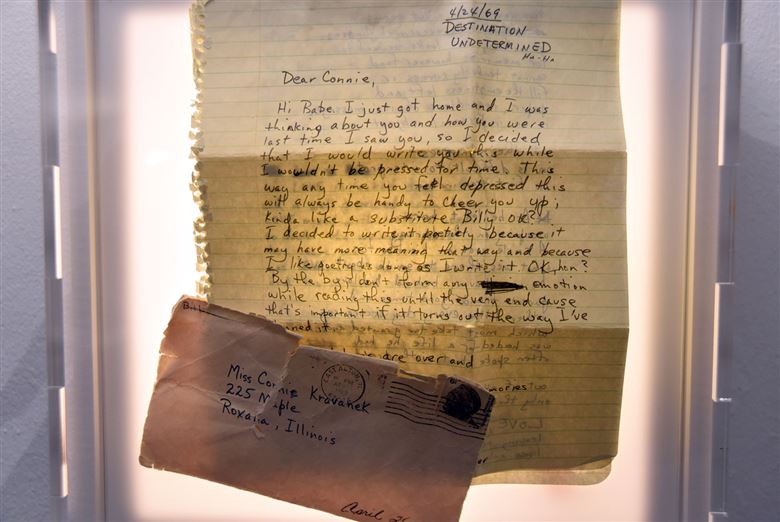 4/24/69
DESTINATION
UNDETERMINED
HA-HA
Dear Connie,
Hi Babe. I just got home and I was
thinking about you and how you were
last time I saw you, so I decided
that I would write you this while
I wouldn't be pressed for time. This
way any time you feel depressed this
will always be handy to cheer you up;
Kinda like a substitute Billy OK?
I decided to write it poeticly because it
may have more meaning that way and because
I like poetry as long as I write it. OK, hon?
By the by, don't form any emotion
while reading this until the very end cause
that's important if it turns out the way I've
planned it.
we are over and
Miss Connie Kravanek
225 Maple
Roxana, Illinois
April